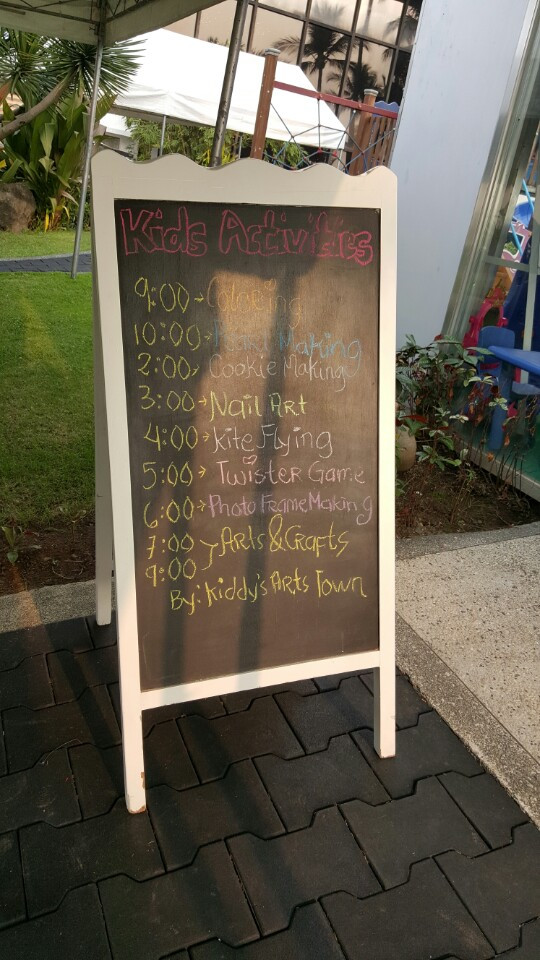 Kids Activities
9:00 → Coloring
10:00 → Making
2:00 → Cookie Making
3:00 → Nail Art
4:00 → Kite Flying
5:00 → Twister Game
6:00 → Photo Frame Making
7:00 Arts & Crafts
9:00
By: Kiddy's Arts Town